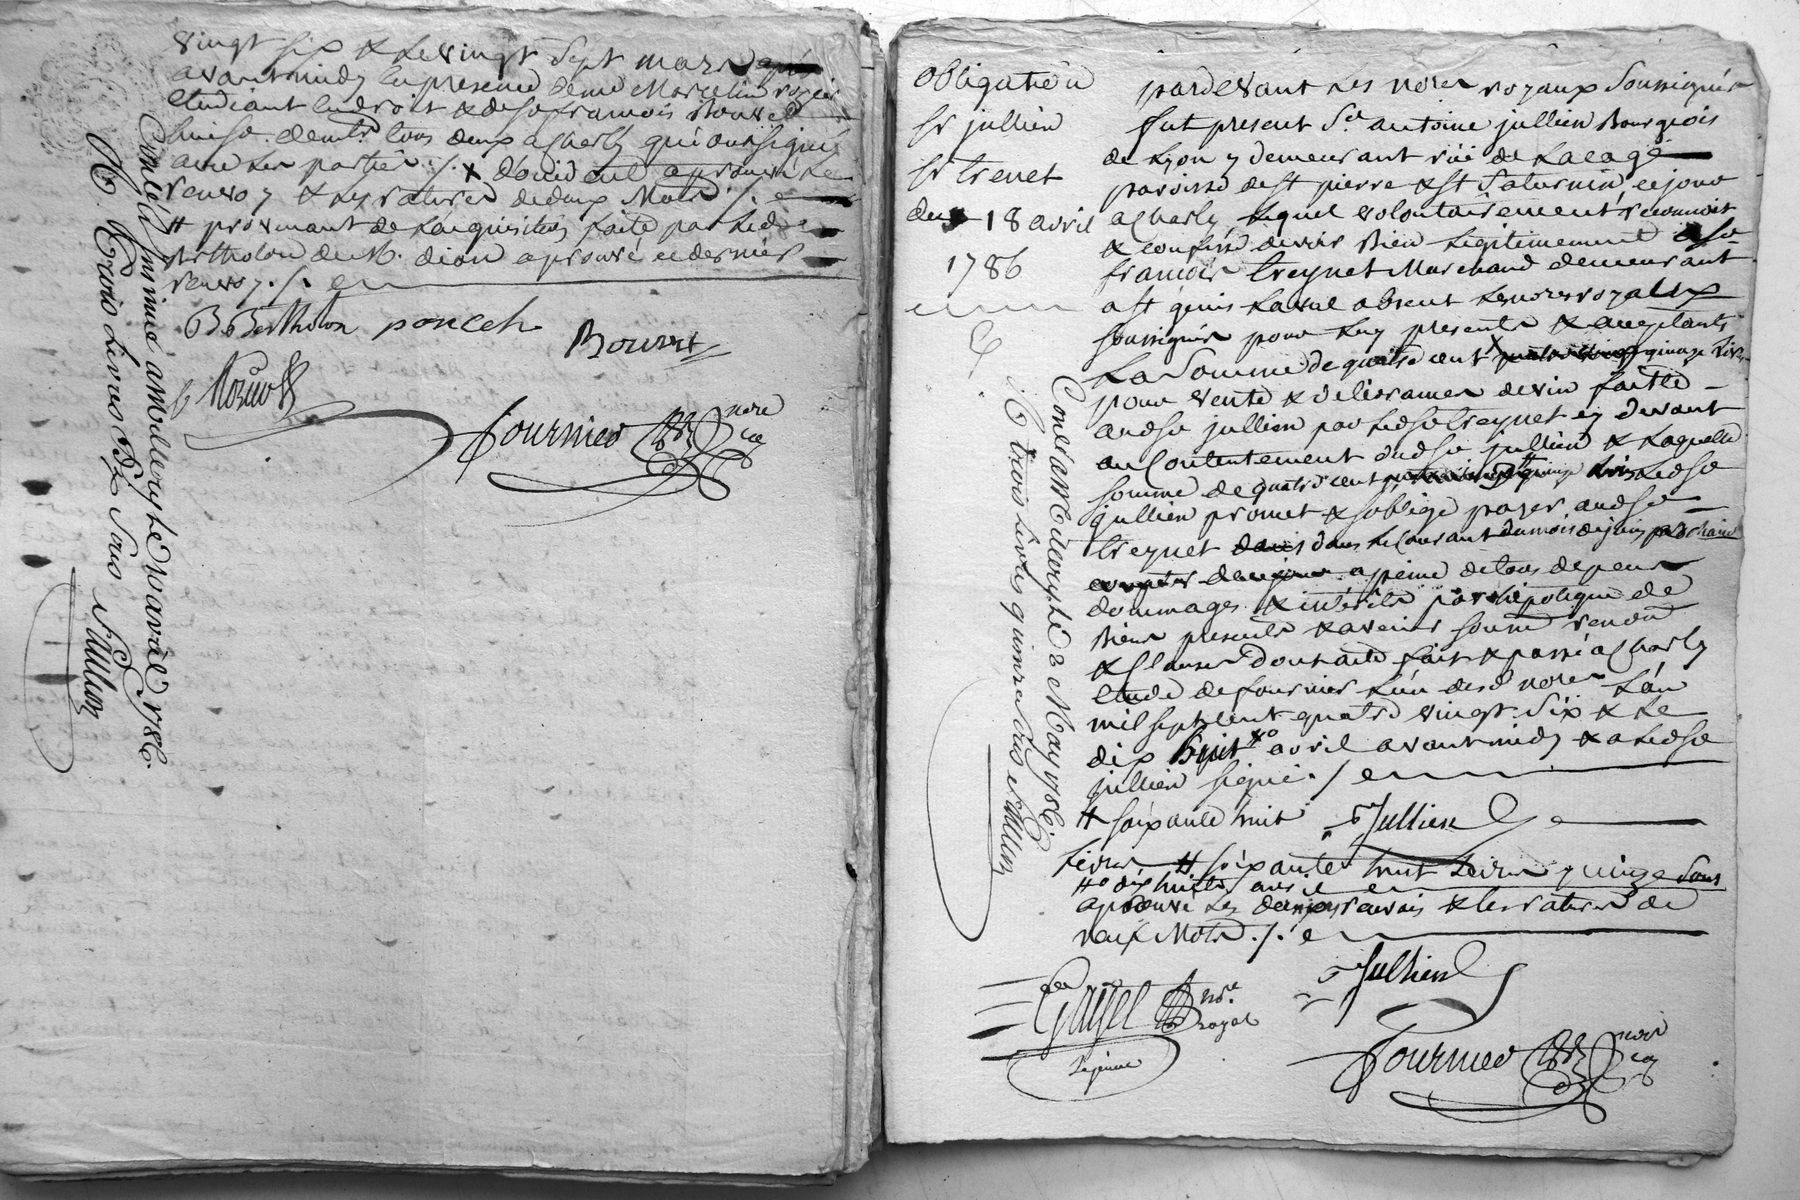 vingt six & le vingt sept mars
avant midy en presence de me Marcelin rozier
etudiant en droit & de sr francois Bouvet
huisr. demts. tous deux a Charly qui ont signé
avec les parties ./. x
renvoy & les ratures de deux Mots ./.
# provenant de l'acquisition faite par led. sr
Bertholon de M. dian aprouvé ce dernier
renvoy ./.
B Bertholon poncet
Bouvet
fournier nore
Controllé insinué a Millery le avril 1786.
R. trois livres dix sous
obligation
sr jullien
sr treynet
du 18 avril
1786
pardevant les nores royaux soussignés
fut present Sr. antoine jullien Bourgeois
de Lyon y demeurant rüe de La cage
paroisse de st pierre & st Saturnin, ce jour
a Charly, lequel volontairement reconnoit
& confesse devoir bien legitimement a sr
francois treynet Marchand demeurant
a st genis Laval absent les nores royaux
soussignés pour luy presents & acceptants
La Somme de quatre cent x quinze Livs
pour vente & delivrance de vin faitte
audsr jullien par ledsr treynet cy devant
au Contentement dudsr jullien & Laquelle
somme de quatre cent Livres Ledsr
jullien promet & s'oblige payer audsr
treynet dans le Courant du mois de juin prochain
a peine de tous depens
dommages & interets par hipoteque de
biens presents & avenir soumis renon
& Clauses dont acte fait & passé a Charly
etude de fournier l'un desd. nores L'an
mil sept cent quatre vingt six & le
dix huit avril avant midy & a ledsr
jullien signé ./.
# soixante huit
Jullien
livres # soixante huit livres quinze sous
#o dix huit avril
aprouvé les renvois & les ratures de
neuf Mots ./.
Jullien
Gayet nore
royal
Lejeune
fournier nore
Con̄lé a Millery le 2 May 1786.
R. trois livres quinze sous